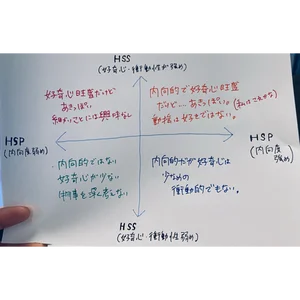 HSS
(好奇心・衝動性が強め)
好奇心旺盛だけど
あきっぽい。
細かいことには興味なし
内向的で好奇心旺盛
だけど…あきっぽい。(私はこれかな)
動揺は好きではない。
HSP
(内向度弱め)
HSP
(内向度
強め)
内向的ではない
好奇心が少ない
物事を深く考えない
内向的だが好奇心は
少なめの
衝動的でもない。
HSS
(好奇心・衝動性弱め)